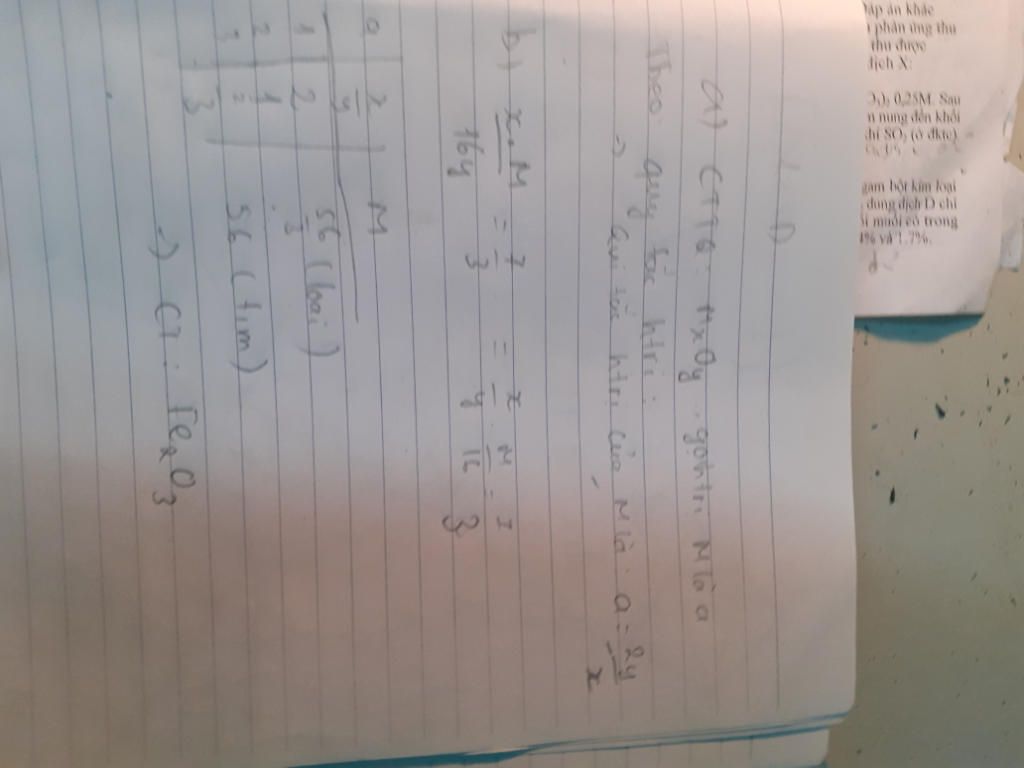 1)
a) CTTQ: MxOy. gọi htri M là a
Theo quy tắc htri:
→ a = 2y/x
b) x.M/16y = 7/3 = x/y . M/16 = 7/3
a x/y M
1 2 56 (loại)
2 1
3 2/3 56 (t/m)
→ CT: Fe2O3
đáp án khác
phản ứng thu
thu được
dịch X:
0,25M. Sau
nung đến khối
khí SO2 (ở đktc)
gam bột kim loại
dung dịch D chỉ
muối có trong
và 1,7%.